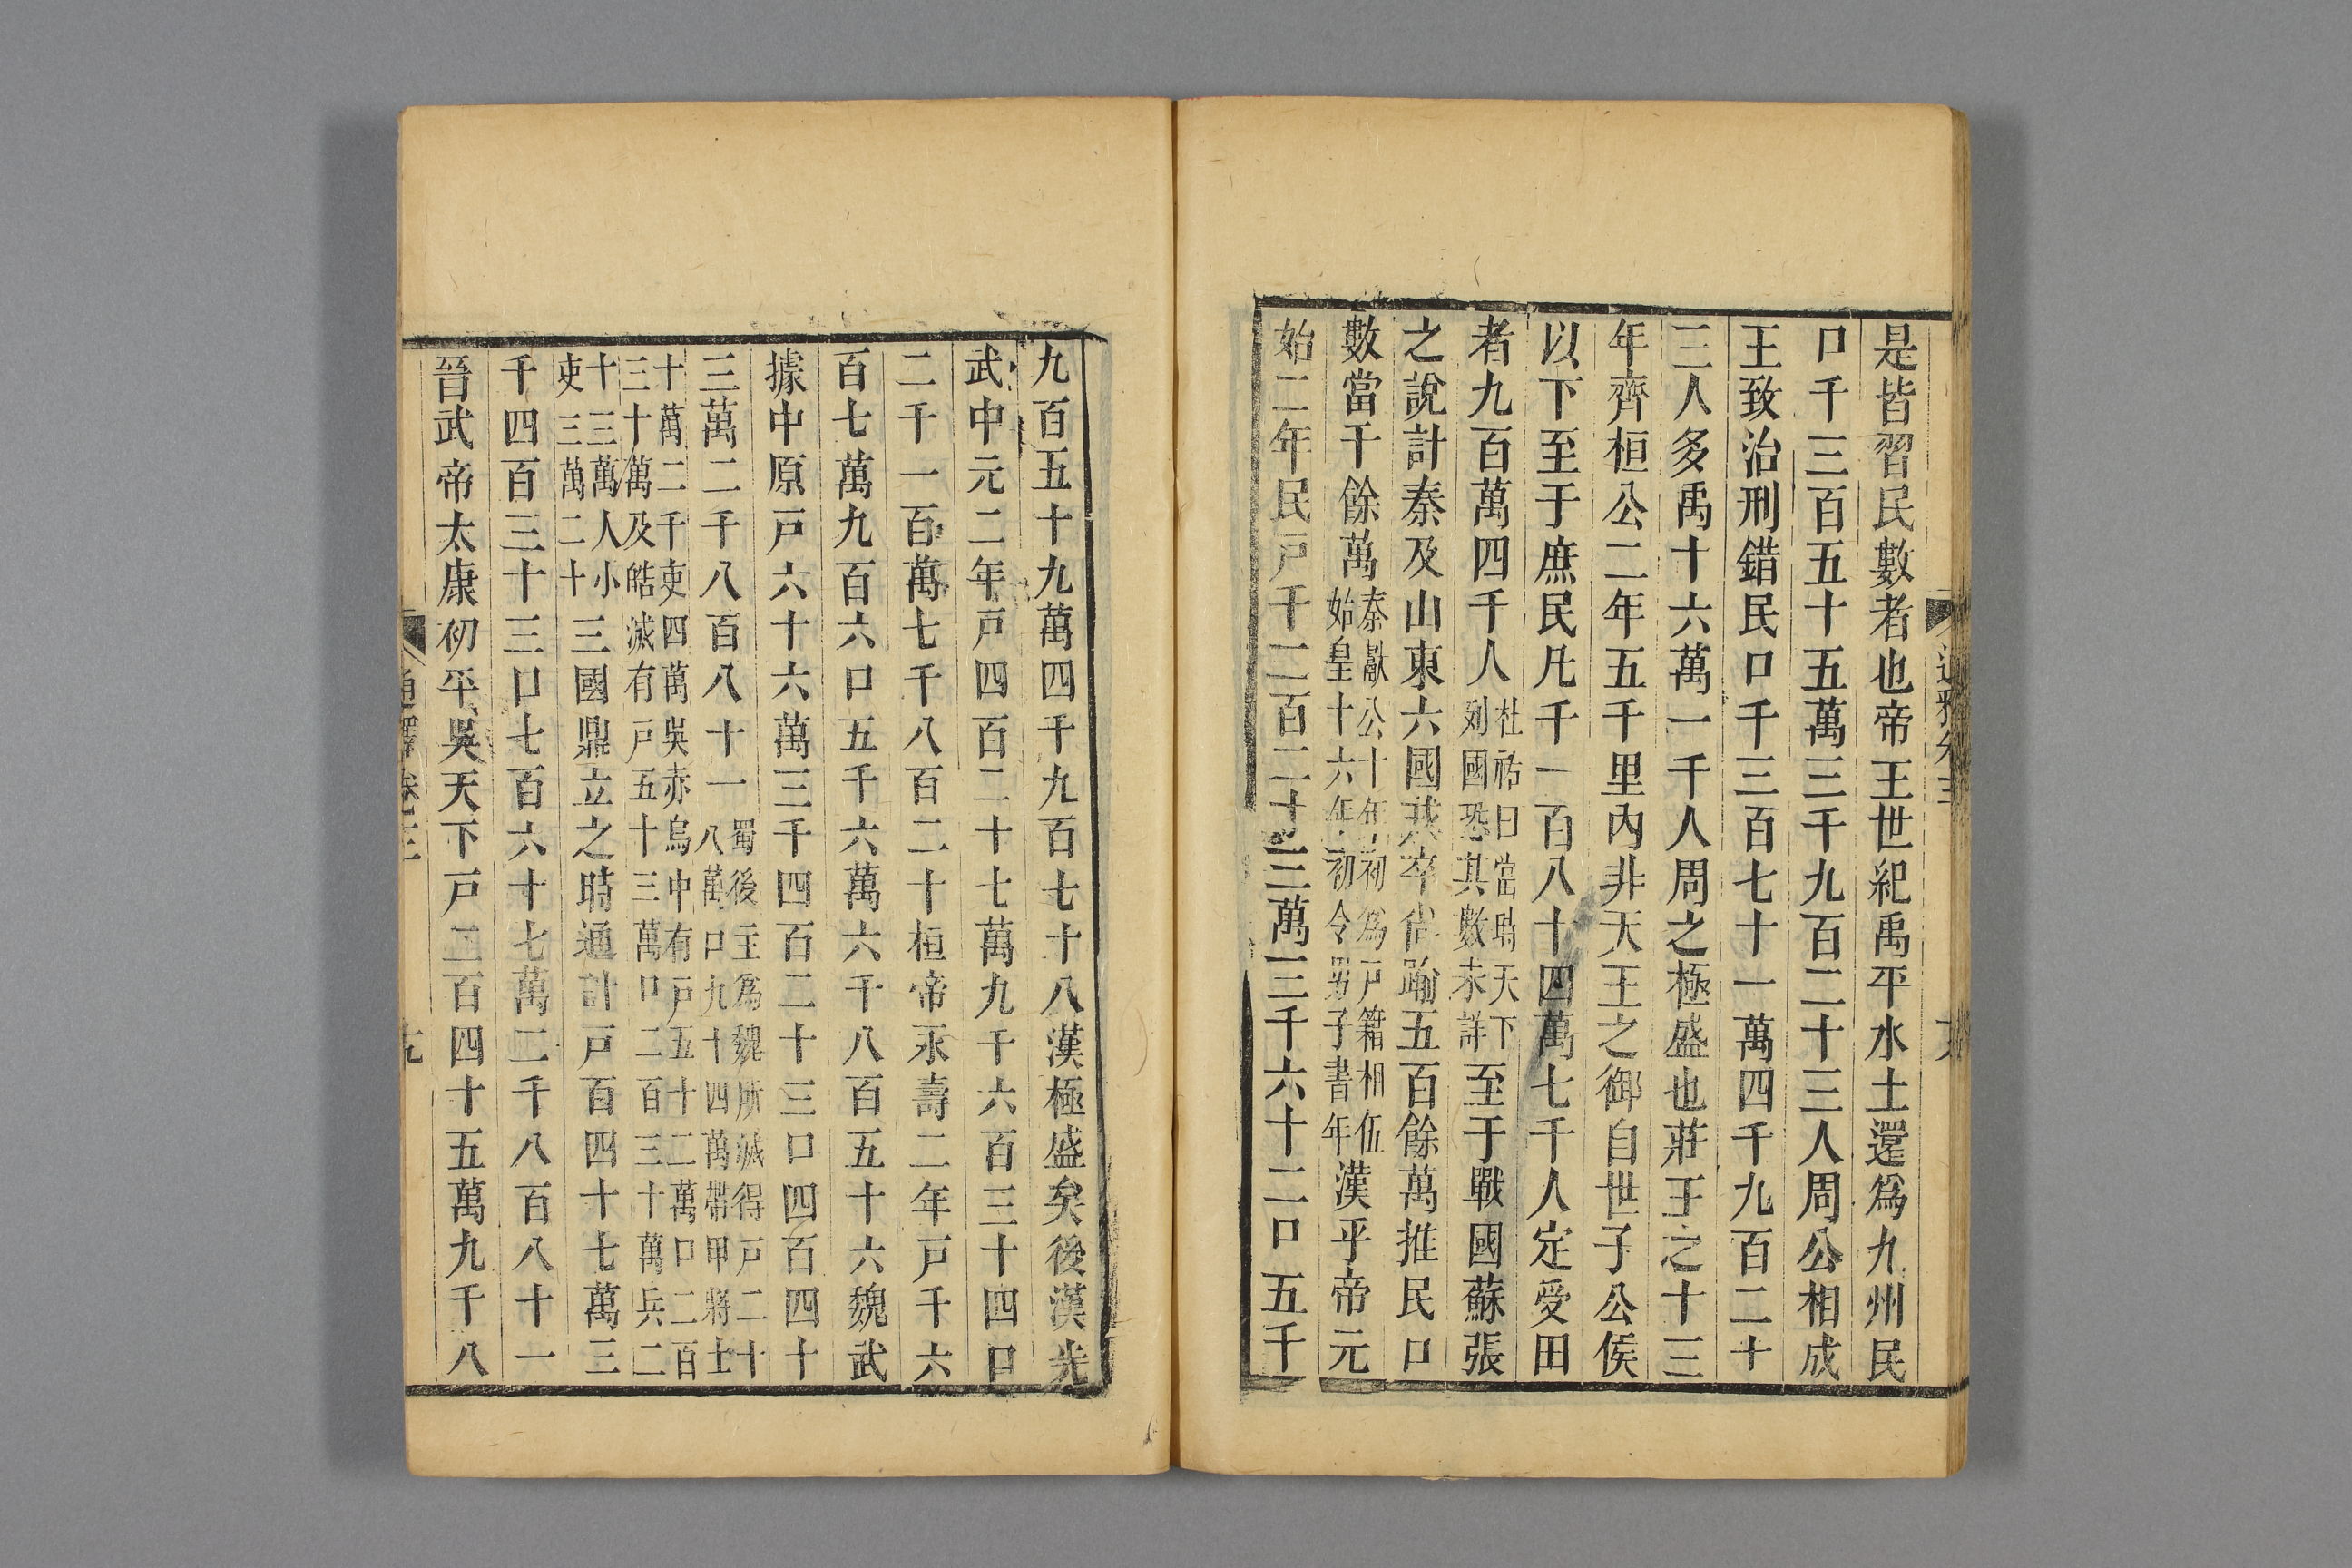 是皆習民數者也帝王世紀禹平水土還爲九州民
口千三百五十五萬三千九百二十三人周公相成
王致治刑錯民口千三百七十一萬四千九百二十
三人多禹十六萬一千人周之極盛也莊王之十三
年齊桓公二年五千里內非天王之御自世子公侯
以下至于庶民凡千一百八十四萬七千人定受田
者九百萬四千人杜祐曰當時天下列國恐其數未詳至于戰國蘇張
之說計秦及山東六國戎卒尚踰五百餘萬推民口
數當千餘萬秦獻公十年初爲戸籍相伍始皇十六年初令男子書年漢平帝元
始二年民戸千二百二十三萬三千六十二口五千
九百五十九萬四千九百七十八漢極盛矣後漢光
武中元二年戸四百二十七萬九千六百三十四口
二千一百萬七千八百二十桓帝永壽二年戸千六
百七萬九百六口五千六萬六千八百五十六魏武
據中原戸六十六萬三千四百二十三口四百四十
三萬二千八百八十一蜀後主爲魏所滅得戸二十八萬口九十四萬帶甲將士
十萬二千吏四萬吳赤烏中有戸五十二萬口二百三十萬及皓滅有戸五十三萬口二百三十萬兵二
十三萬人小吏三萬二十三國鼎立之時通計戸百四十七萬三
千四百三十三口七百六十七萬二千八百八十一
晉武帝太康初平吳天下戸二百四十五萬九千八